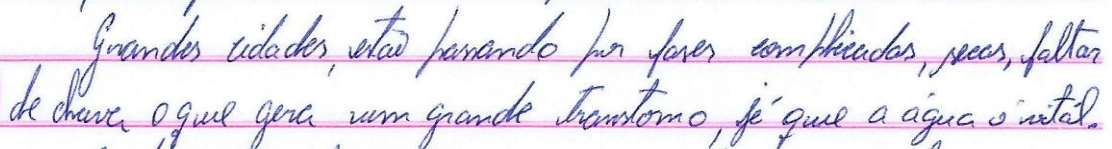 Grandes cidades, estão passando por fases complicadas, secas, faltas
de chuva o que gera um grande transtorno, já que a água é vital.